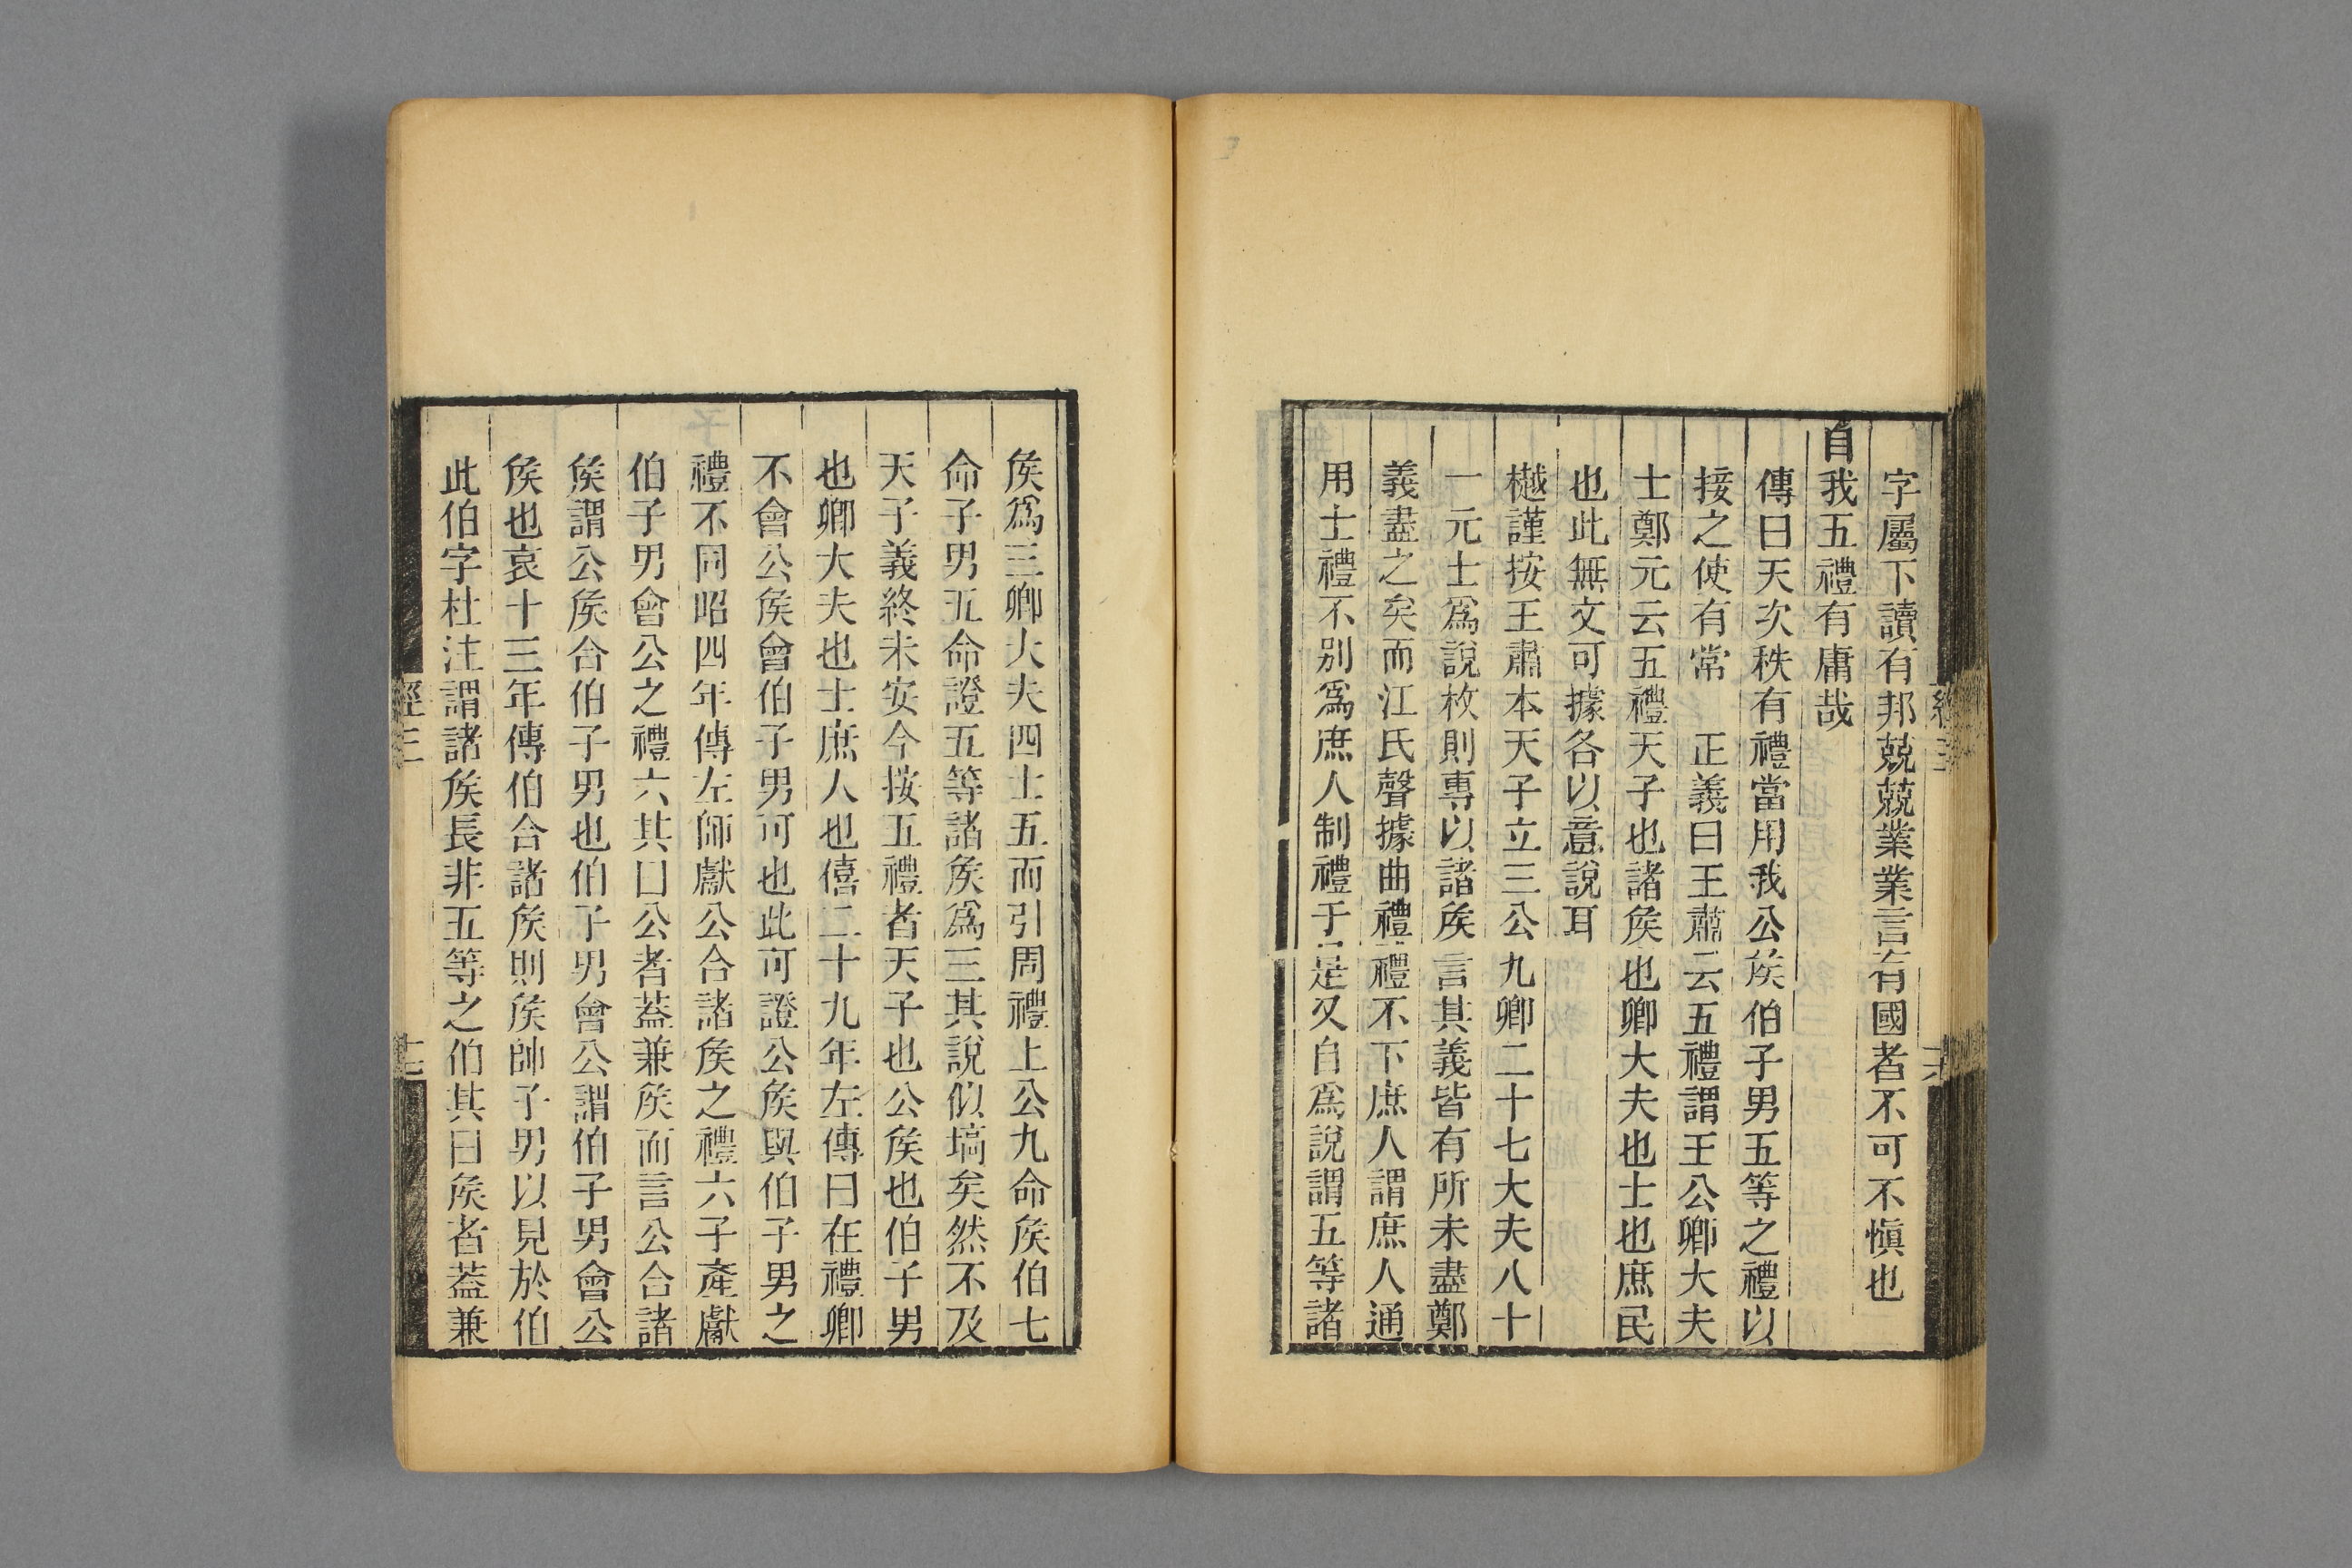 字屬下讀有邦兢兢業業言有國者不可不愼也
自我五禮有庸哉
傳曰天次秩有禮當用我公矦伯子男五等之禮以
接之使有常　正義曰王肅云五禮謂王公卿大夫
士鄭元云五禮天子也諸矦也卿大夫也士也庶民
也此無文可據各以意說耳
樾謹按王肅本天子立三公九卿二十七大夫八十
一元士爲說枚則專以諸矦言其義皆有所未盡鄭
義盡之矣而江氏聲據曲禮禮不下庶人謂庶人通
用士禮不別爲庶人制禮于是又自爲說謂五等諸
矦爲三卿大夫四士五而引周禮上公九命矦伯七
命子男五命證五等諸矦爲三其說似塙矣然不及
天子義終未安今按五禮者天子也公矦也伯子男
也卿大夫也士庶人也僖二十九年左傳曰在禮卿
不會公矦會伯子男可也此可證公矦與伯子男之
禮不同昭四年傳左師獻公合諸矦之禮六子產獻
伯子男會公之禮六其曰公者蓋兼矦而言公合諸
矦謂公矦合伯子男也伯子男會公謂伯子男會公
矦也哀十三年傳伯合諸矦則矦帥子男以見於伯
此伯字杜注謂諸矦長非五等之伯其曰矦者蓋兼
經三
十七